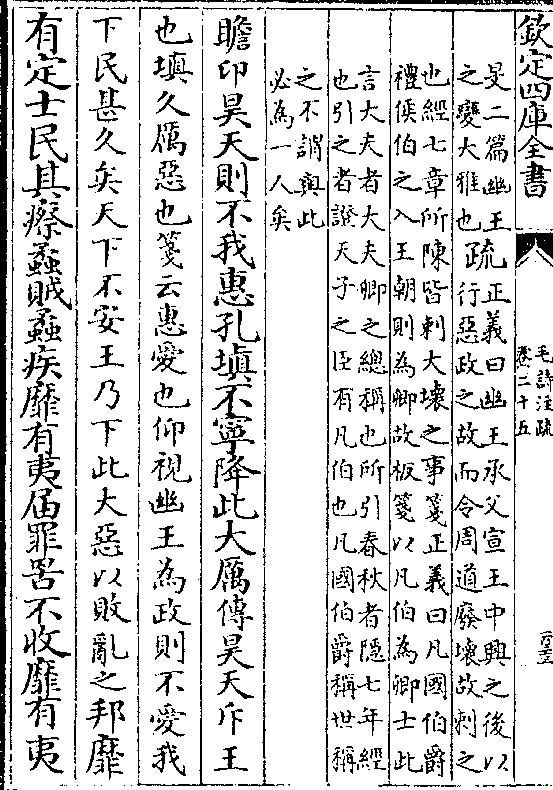 欽定四庫全書
毛詩注疏
卷二十五
旻二篇幽王
之變大雅也
疏
正義曰幽王承父宣王中興之後以
行惡政之故而令周道廢壞故刺之
也經七章所陳皆刺大壞之事箋正義曰凡國伯爵
禮侯伯之入王朝則為卿故板箋以凡伯為卿士此
言大夫者大夫卿之總稱也所引春秋者隱七年經
也引之者證天子之臣有凡伯也凡國伯爵稱世稱
之不謂與此
必為一人矣
瞻卬昊天則不我惠孔填不寧降此大厲傳昊天斥王
也填久厲惡也箋云惠愛也仰視幽王為政則不愛我
下民甚久矣天下不安王乃下此大惡以敗亂之邦靡
有定士民其瘵蟊賊蟊疾靡有夷屆罪罟不收靡有夷